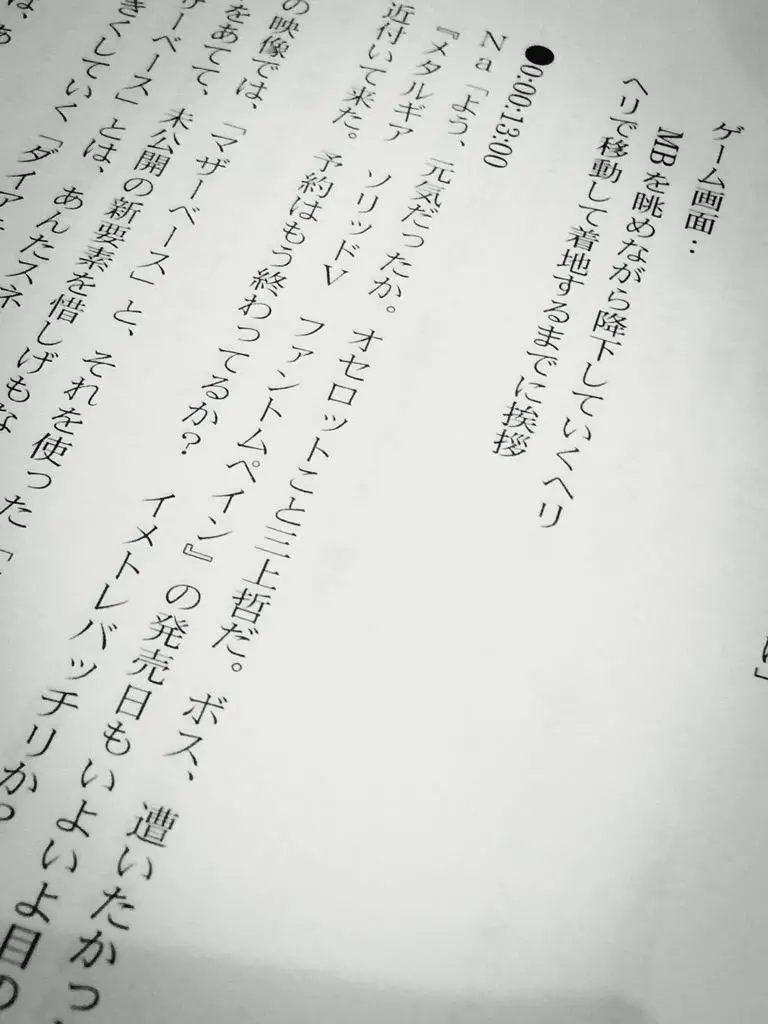 ゲーム画面：
MBを眺めながら降下していくヘリ
ヘリで移動して着地するまでに挨拶
●0:00:13:00
Na「よう、元気だったか。オセロットこと三上哲だ。ボス、遭いたかっ
『メタルギア ソリッドV ファントムペイン』の発売日もいよいよ目の
近付いて来た。予約はもう終わってるか？ イメトレバッチリか？
の映像では、「マザーベース」と、それを使った「
をあてて、未公開の新要素を惜しげもな
ザーベース」とは、あんたスネ
きくしていく「ダイア
は、あ